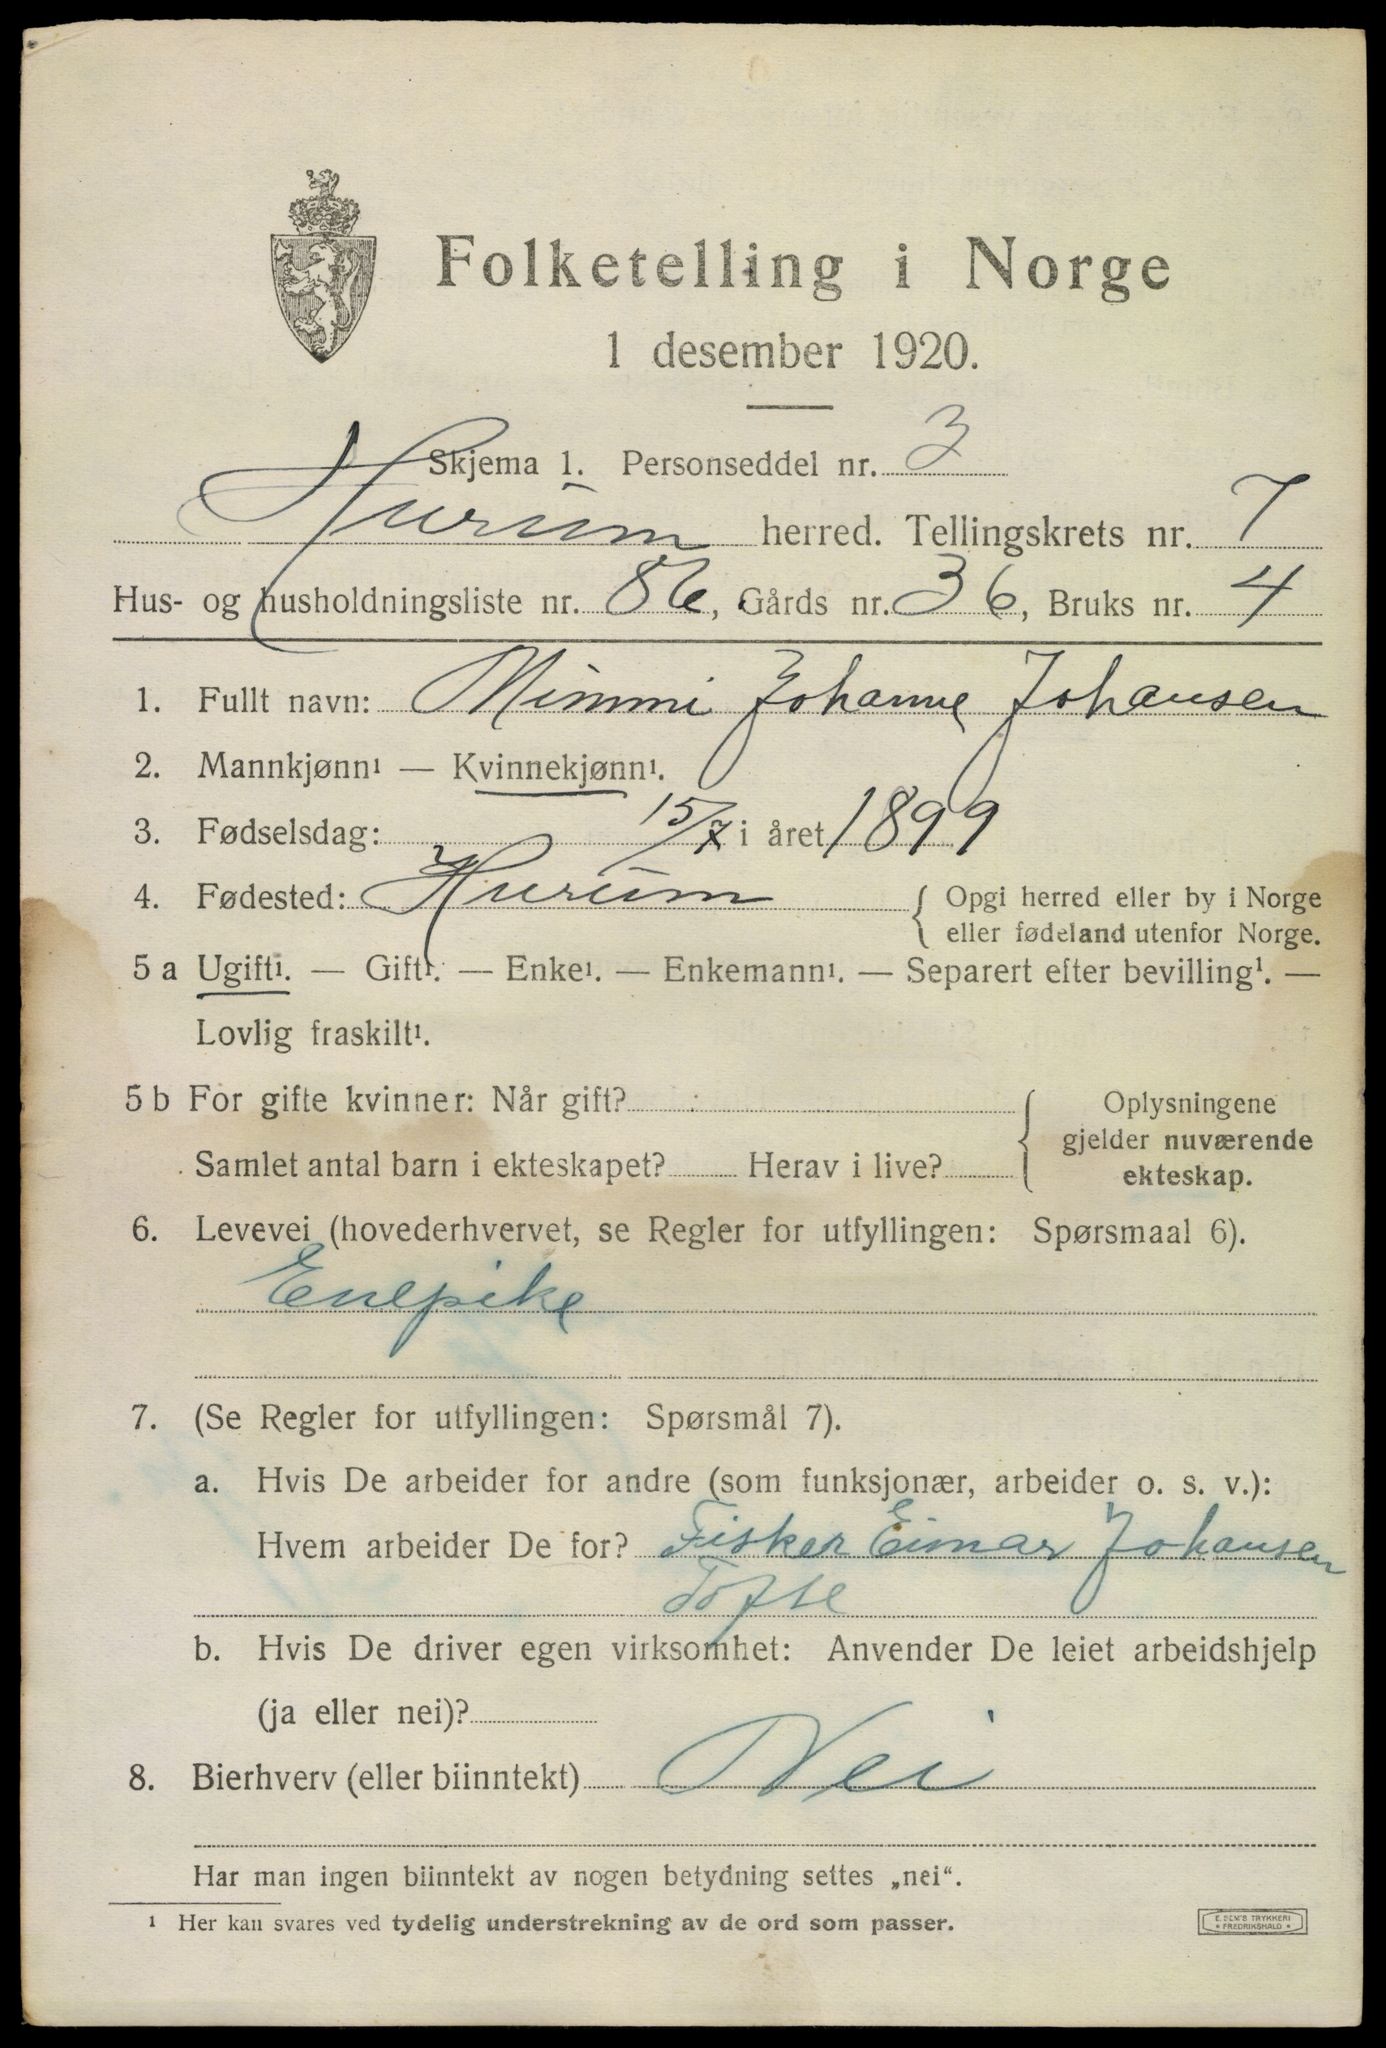 Folketelling i Norge
1 desember 1920.
Skjema 1. Personseddel nr. 3
Hurum herred. Tellingskrets nr. 7
Hus- og husholdningsliste nr. 86, Gårds nr. 36, Bruks nr. 4
1. Fullt navn: Mimmi Johanne Johansen
2. Mannkjønn¹ — Kvinnekjønn¹.
3. Fødselsdag: 15/7 i året 1899
4. Fødested: Hurum { Opgi herred eller by i Norge
eller fødeland utenfor Norge.
5 a Ugift¹. — Gift¹. — Enke¹. — Enkemann¹. — Separert efter bevilling¹. —
Lovlig fraskilt¹.
5 b For gifte kvinner: Når gift? { Oplysningene
gjelder nuværende
Samlet antal barn i ekteskapet? Herav i live?
ekteskap.
6. Levevei (hovederhvervet, se Regler for utfyllingen: Spørsmaal 6).
Enepike
7. (Se Regler for utfyllingen: Spørsmål 7).
a. Hvis De arbeider for andre (som funksjonær, arbeider o. s. v.):
Hvem arbeider De for? Fisker Eimar Johansen
Tofte
b. Hvis De driver egen virksomhet: Anvender De leiet arbeidshjelp
(ja eller nei)?
8. Bierhverv (eller biinntekt) Nei
Har man ingen biinntekt av nogen betydning settes „nei“.
¹ Her kan svares ved tydelig understrekning av de ord som passer.
E. SEM'S TRYKKERI
• FREDRIKSHALD •